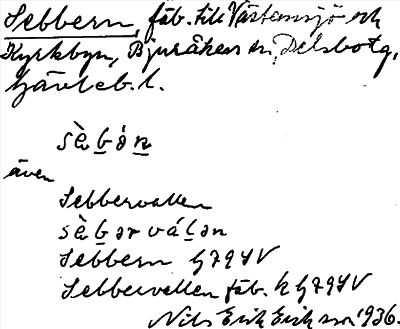 Sebbern, fäb. till Västansjö och
Kyrkbyn, Bjuråkers sn, Delsbo tg,
Gävleb. l.
sὲbən
även
Sebbervallen
sὲbərválən
Sebbern G794V
Sebbervallen fäb. k G794V
Nils Erik Eriksson 1936.